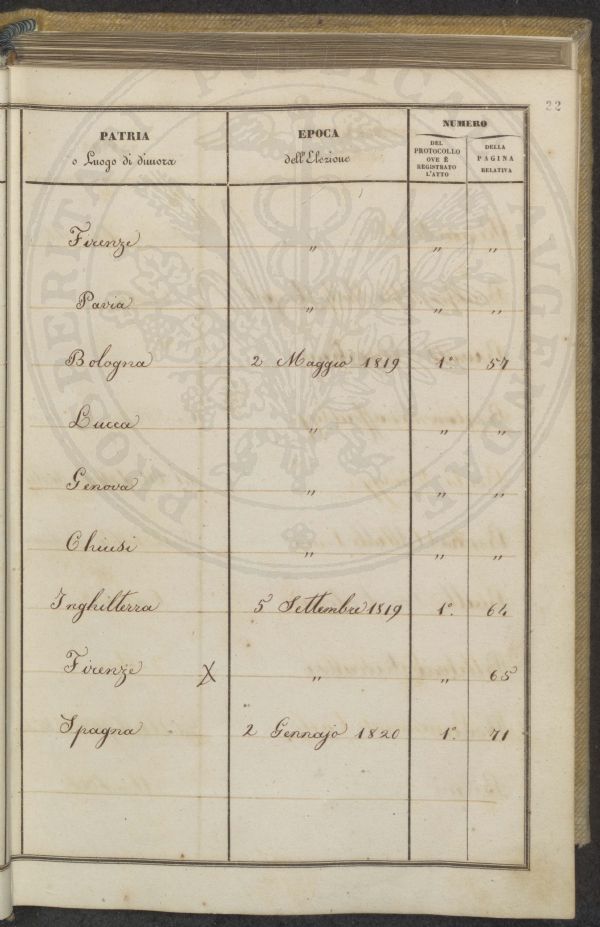 22
PATRIA
o Luogo di dimora
EPOCA
dell'Elezione
NUMERO
DEL
PROTOCOLLO
OVE È
REGISTRATO
L'ATTO
DELLA
PAGINA
RELATIVA
Firenze " " "
Pavia " " "
Bologna 2 Maggio 1819 1°. 57
Lucca " " "
Genova " " "
Chiusi " " "
Inghilterra 5 Settembre 1819 1°. 64
Firenze X " " 65
Spagna 2 Gennajo 1820 1°. 71
PROSPERITATI PUBLICAE AUGENDAE